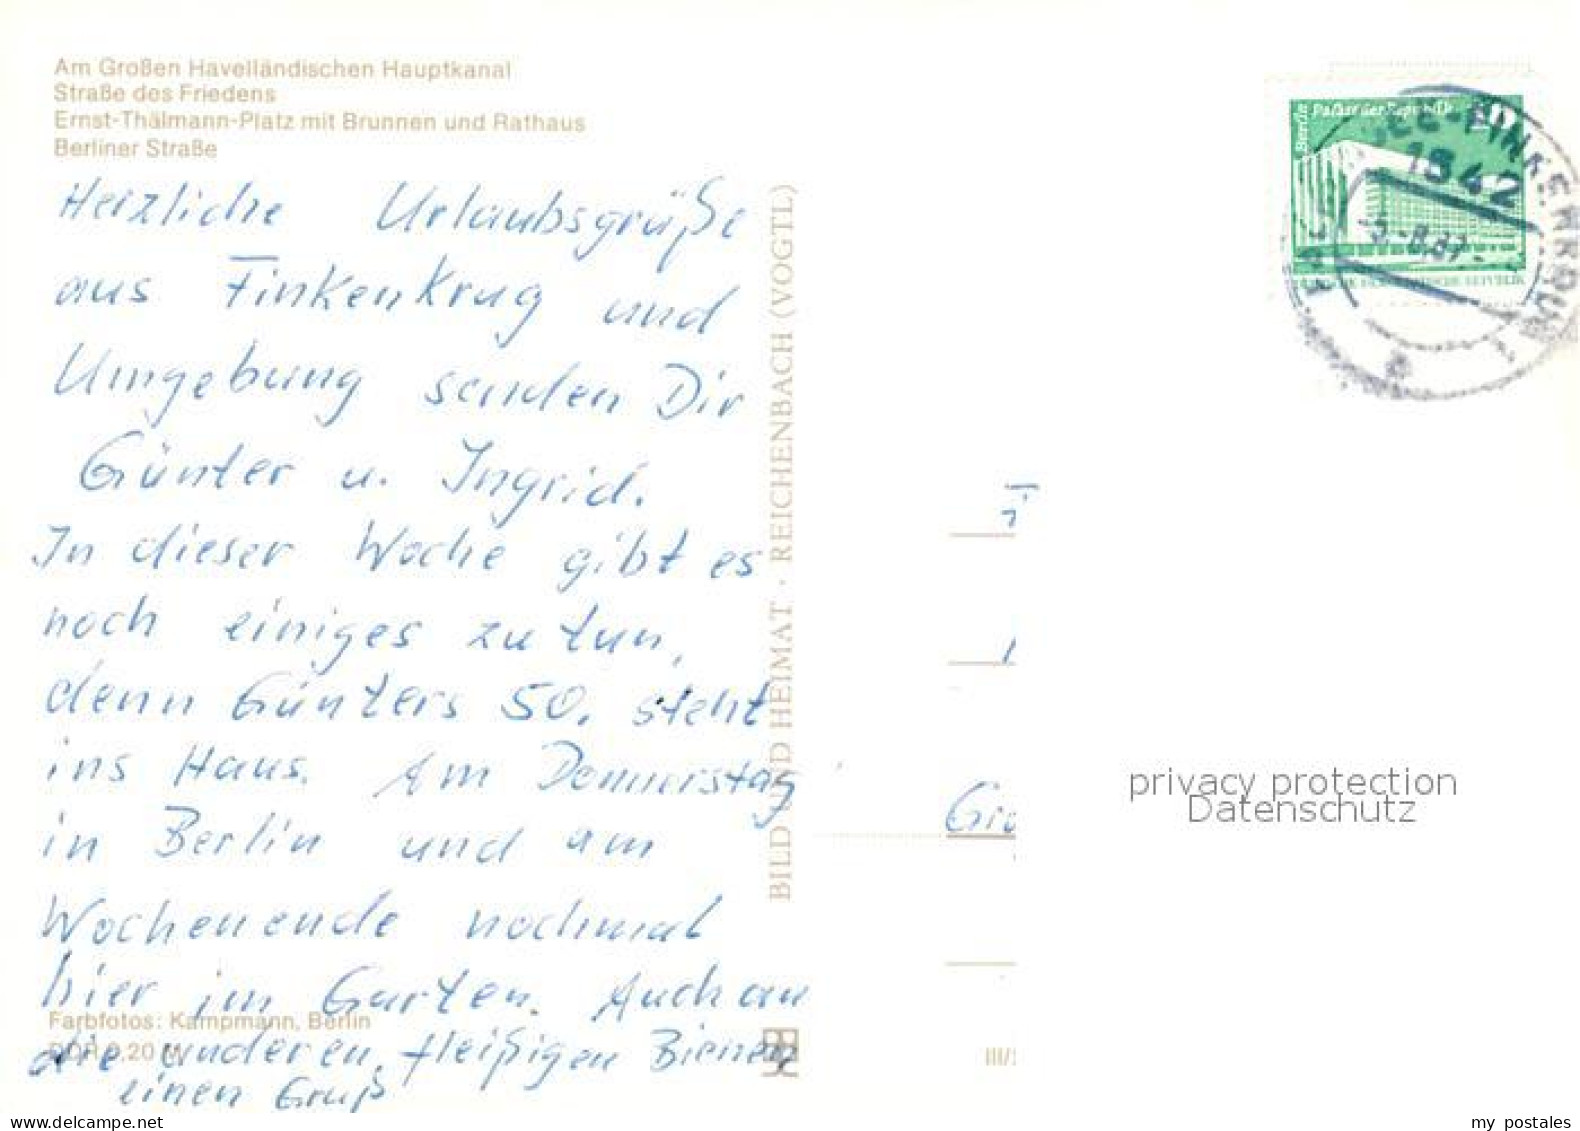 Am Großen Havelländischen Hauptkanal
Straße des Friedens
Ernst-Thälmann-Platz mit Brunnen und Rathaus
Berliner Straße
Herzliche Urlaubsgrüße
aus Finkenkrug und
Umgebung senden Dir
Günter u. Ingrid.
In dieser Woche gibt es
noch einiges zu tun,
denn Günters 50. steht
ins Haus. Am Donnerstag
in Berlin und am
Wochenende nochmal
hier im Garten. Auch an
die anderen fleißigen Bienen
einen Gruß
Farbfotos: Kampmann, Berlin
DDR 0.20 M
BILD UND HEIMAT · REICHENBACH (VOGTL)
Berlin Palast der Republik
1542
privacy protection
Datenschutz
III/
my postales